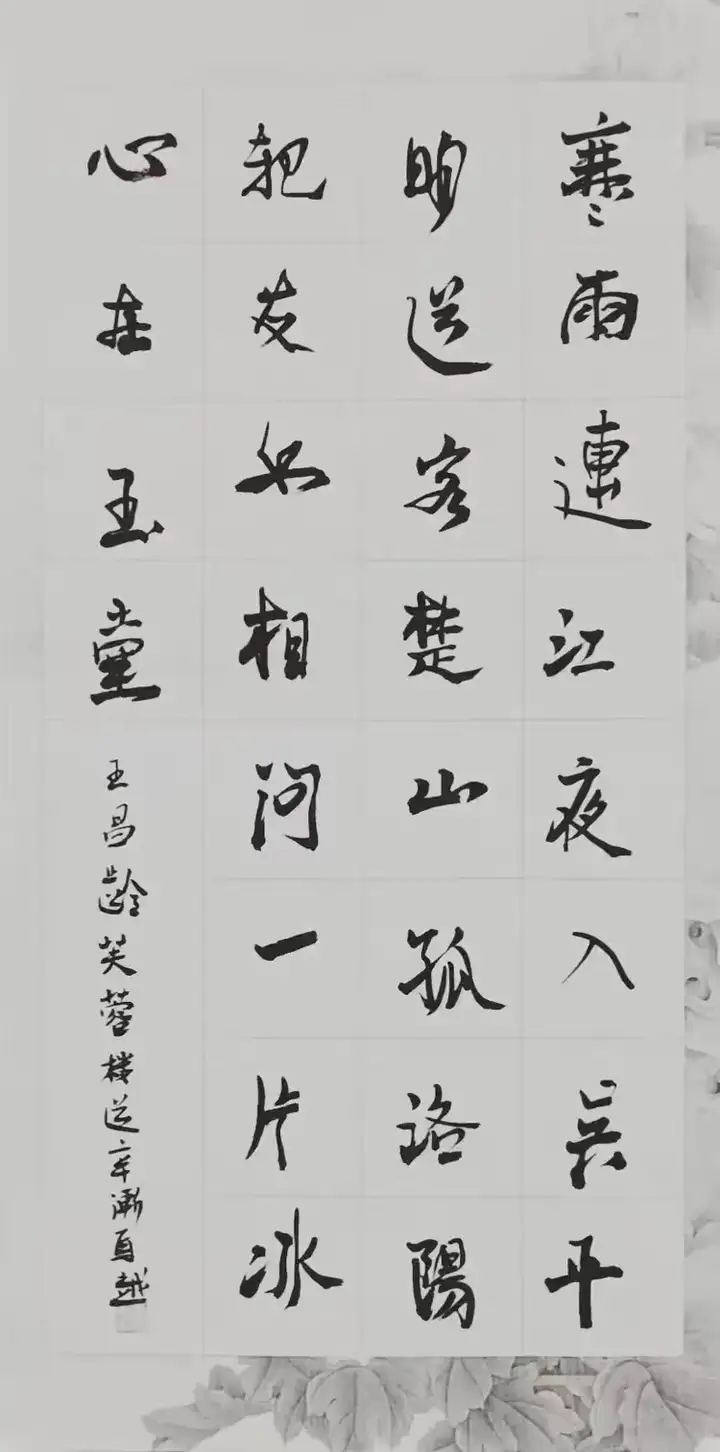 寒雨連江夜入吴平
明送客楚山孤洛陽
親友如相问一片冰
心在玉壺
王昌齡芙蓉樓送辛漸越